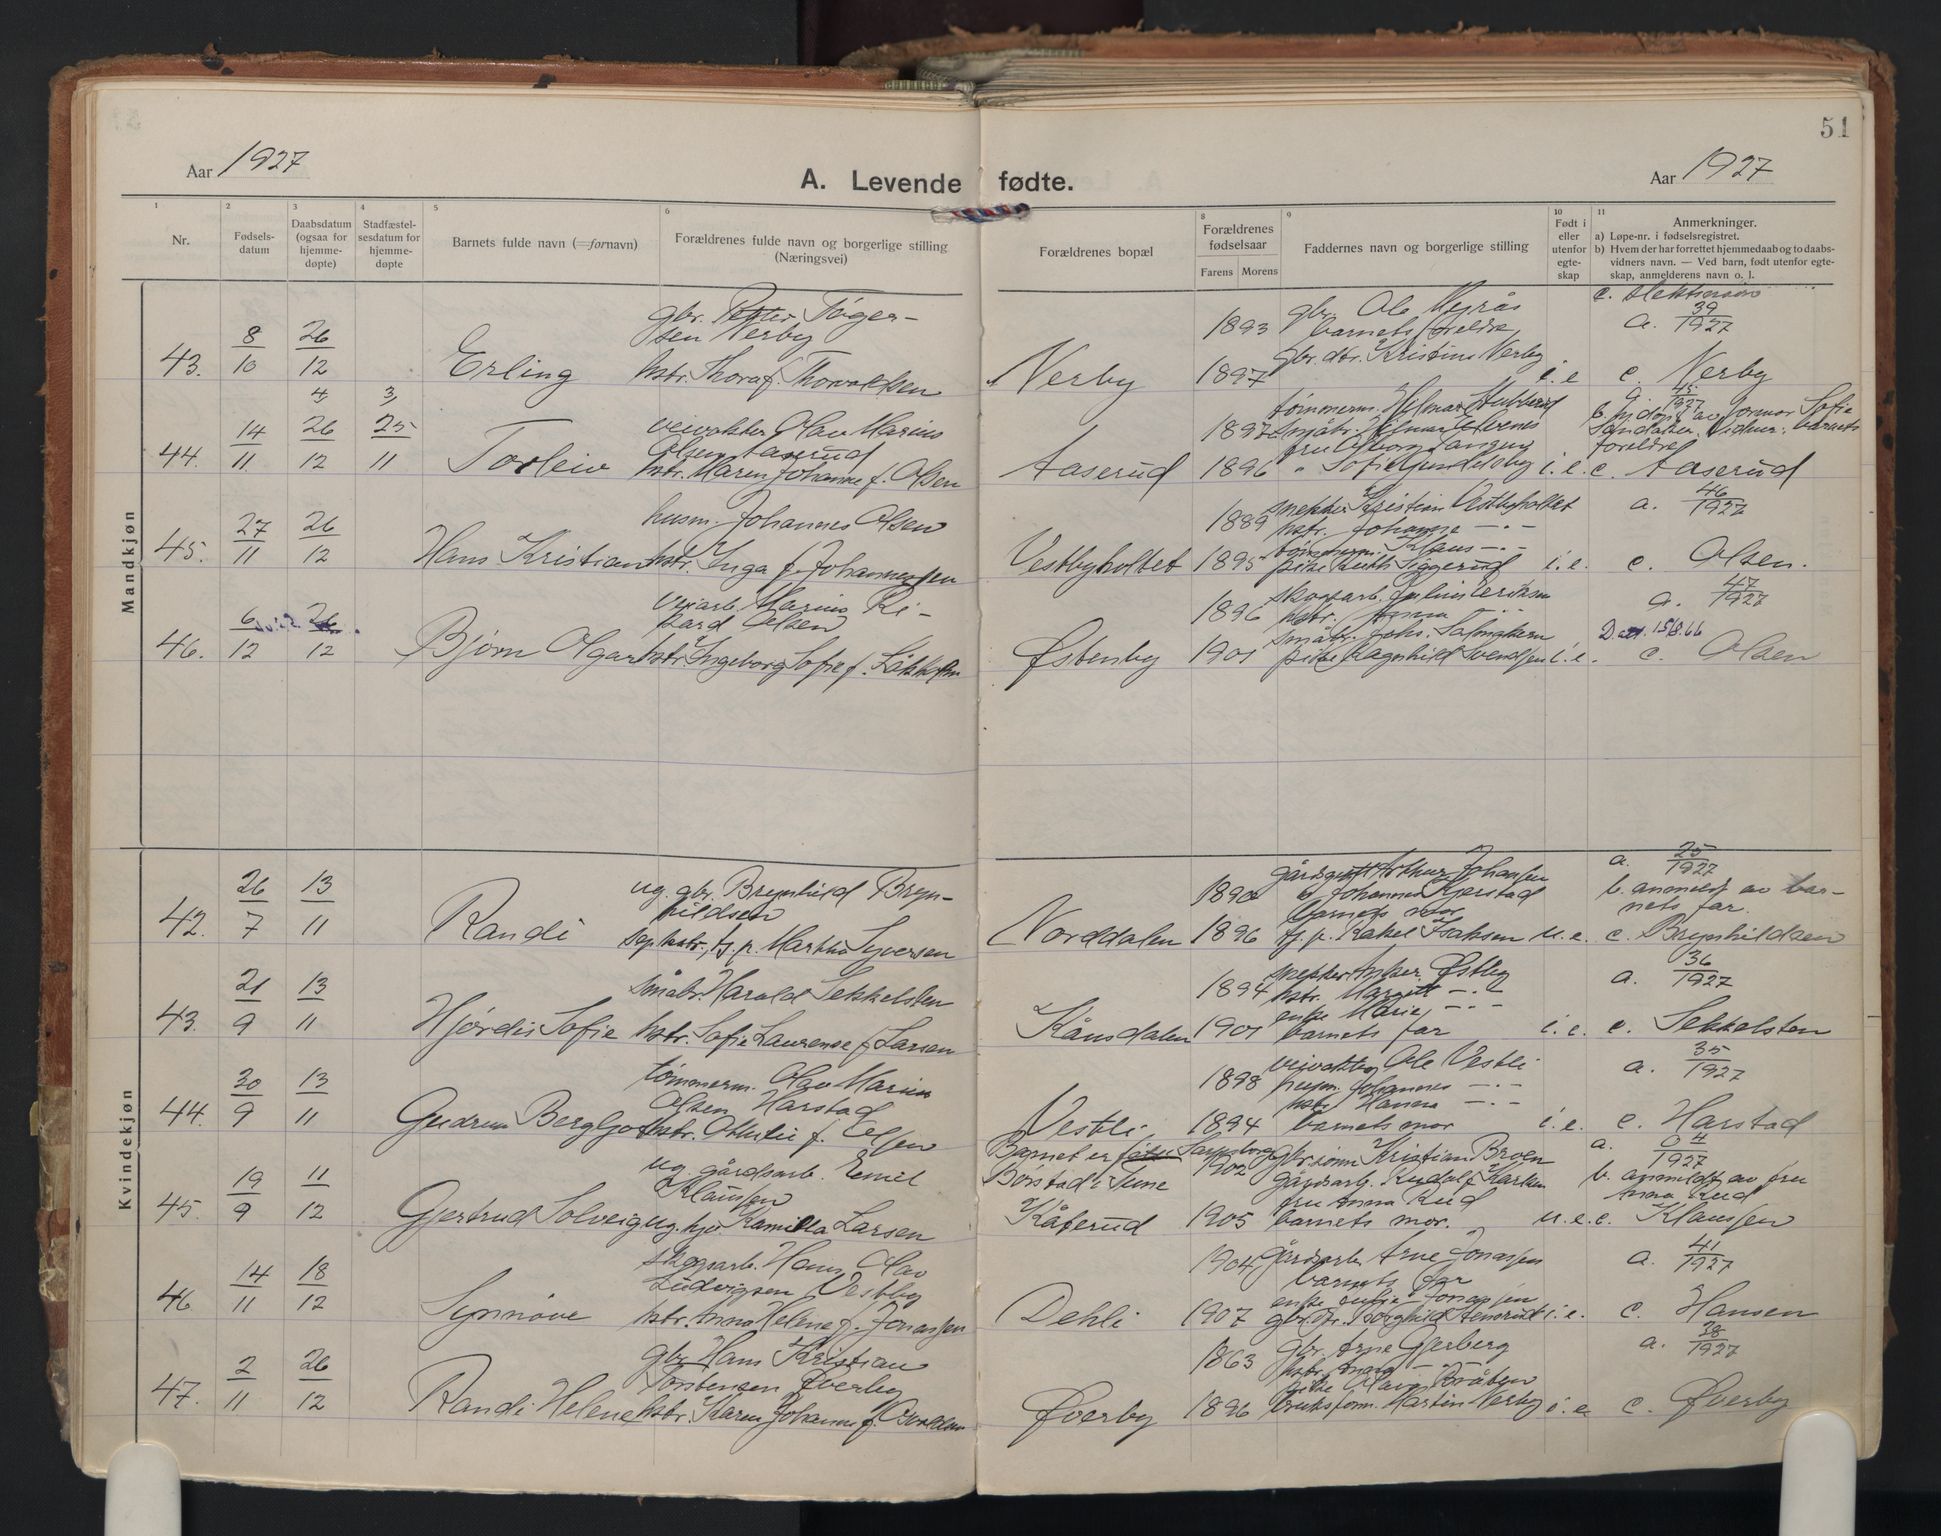 51
Aar 1927
A. Levende fødte.
Aar 1927
1 2 3 4 5 6 8 9 10 11
Nr.
Fødsels-
datum
Daabsdatum
(ogsaa for
hjemme-
døpte)
Stadfæstel-
sesdatum for
hjemme-
døpte
Barnets fulde navn (=fornavn)
Forældrenes fulde navn og borgerlige stilling
(Næringsvei)
Forældrenes bopæl
Forældrenes
fødselsaar
Farens Morens
Faddernes navn og borgerlige stilling
Født i
eller
utenfor
egte-
skap
Anmerkninger.
a) Løpe-nr. i fødselsregistret.
b) Hvem der har forrettet hjemmedaab og to daabs-
vidners navn. — Ved barn, født utenfor egte-
skap, anmelderens navn o. l.
Mandkjøn
43. 8/10 26/12 Erling
gbr. Petter Torger-
sen Nerby
hstr. Thora f. Thorvaldsen
Nerby 1893 1897
gbr. Ole
barnets foreldre
gbr. dtr. Kristine Nerby
i.e
a. 39/1927
c. Nerby
4, 3,
44. 14/11 26/12 25/11 Torleiv
veivokter Olav Marius
Olsen Aaserud
hstr. Maren Johanne f. Olsen
Aaserud 1897 1896
tømmerm. Hilmar
småbr. Hilmar
fru
" Sofie
i.e.
a. 45/1927
b. av formor Sofie
barnets
foreldre
c. Aaserud
45. 27/11 26/12 Hans Kristian
husm. Johannes Olsen
hstr. Inga f. Johannessen
Vestbyholtet 1889 1895
snekker Kristian Vestbyholtet
hstr. Johanne — " —
tømmerm. Klaus — " —
pike Ruth Siggerud
i.e.
a. 46/1927
c. Olsen.
46. 6/12 26/12 Bjørn Olgar
veiarb. Marius Ri-
kard Olsen
hstr. Ingeborg Sofie f.
Østenby 1896 1901
skogsarb. Eriksen
hstr. Anna
småbr. Johs.
pike Ragnhild Svendsen
i.e.
a. 47/1927
15/8.66
c. Olsen
Kvindekjøn
42. 26/7 13/11 Randi
ug. gbr. Brynhild Bryn-
hildsen
sep. hstr. tj. p. Martha Syversen
Norddalen 1890 1896
gårdsgutt Arthur Johansen
Johanna Kjerstad
barnets mor
tj. p. Rakel Isaksen
u.e.
a. 25/1927
b. anmeldt av bar-
nets far.
c. Brynhildsen
43. 21/9 13/11 Hjørdis Sofie
småbr. Harald Sekkelsten
hstr. Sofie Laurense f. Larsen
Kånsdalen 1894 1901
snekker Østby
hstr. Margit — " —
enke Marie — " —
barnets far
i.e.
a. 36/1927
c. Sekkelsten
44. 30/9 13/11 Gudrun Bergljot
tømmerm. Olav Marius
Olsen Harstad
hstr. Othilie f. Olsen
Vestli 1898 1894
veivokter Ole Vestli
husm. Johannes — " —
hstr. Hanna — " —
barnets mor
i.e.
a. 35/1927
c. Harstad
45. 19/9 11/12 Gjertrud Solveig
ug. gårdsarb. Emil
Klausen
ug. hjv. Kamilla Larsen
Barnet er født Sarpsborg
Børstad i Tune
Kåterud 1902 1905
gbr. sønn Kristian Broen
gårdsarb. Rudolf Karlsen
fru Anna Rud
barnets mor.
u.e.
a. 04/1927
b. anmeldt av fru
Anna Rud
c. Klausen
46 14/11 18/12 Synnøve
skogsarb. Hans Olav
Ludvigsen Vestby
hstr. Anna Helene f. Jonassen
Dehli 1904 1907
gårdsarb. Arne Jonassen
barnets far
enke Jonassen
gbr. dtr. Borghild
i.e.
a. 41/1927
c. Hansen
47. 2/11 26/12 Randi Helene
gbr. Hans Kristian
Torstensen Øverby
hstr. Karen Johanne f.
Øverby 1863 1896
gbr. Arne Gjerberg
hstr. Anna — " —
pike Olava Bråten
Martin Nerby
i.e
a. 38/1927
c. Øverby